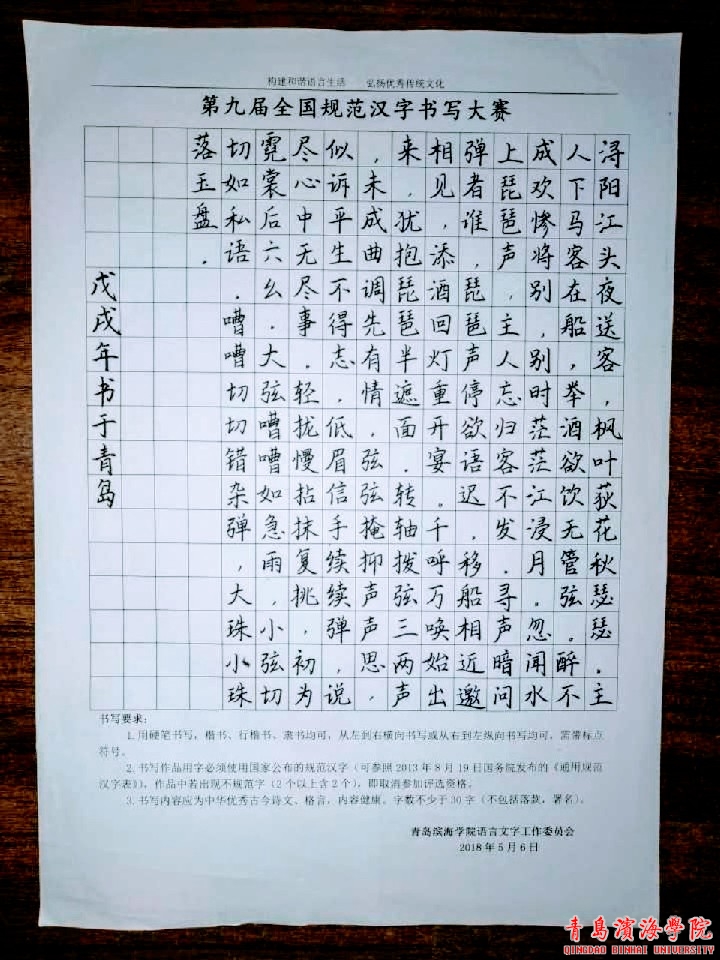 构建和谐语言生活 弘扬优秀传统文化
第九届全国规范汉字书写大赛
浔阳江头夜送客，枫叶荻花秋瑟瑟。主
人下马客在船，举酒欲饮无管弦。醉不
成欢惨将别，别时茫茫江浸月。忽闻水
上琵琶声，主人忘归客不发。寻声暗问
弹者谁，琵琶声停欲语迟。移船相近邀
相见，添酒回灯重开宴。千呼万唤始出
来，犹抱琵琶半遮面。转轴拨弦三两声
，未成曲调先有情。弦弦掩抑声声思，
似诉平生不得志，低眉信手续续弹，说
尽心中无尽事。轻拢慢拈抹复挑，初为
霓裳后六幺。大弦嘈嘈如急雨，小弦切
切如私语。嘈嘈切切错杂弹，大珠小珠
落玉盘。
戊戌年书于青岛
书写要求：
1.用硬笔书写，楷书、行楷书、隶书均可，从左到右横向书写或从右到左纵向书写均可，需带标点
符号。
2.书写作品用字必须使用国家公布的规范汉字（可参照2013年8月19日国务院发布的《通用规范
汉字表》），作品中若出现不规范字（2个以上含2个），即取消参加评选资格。
3.书写内容应为中华优秀古今诗文、格言，内容健康。字数不少于30字（不包括落款，署名）。
青岛滨海学院语言文字工作委员会
2018年5月6日
青島濱海學院
QINGDAO BINHAI UNIVERSITY